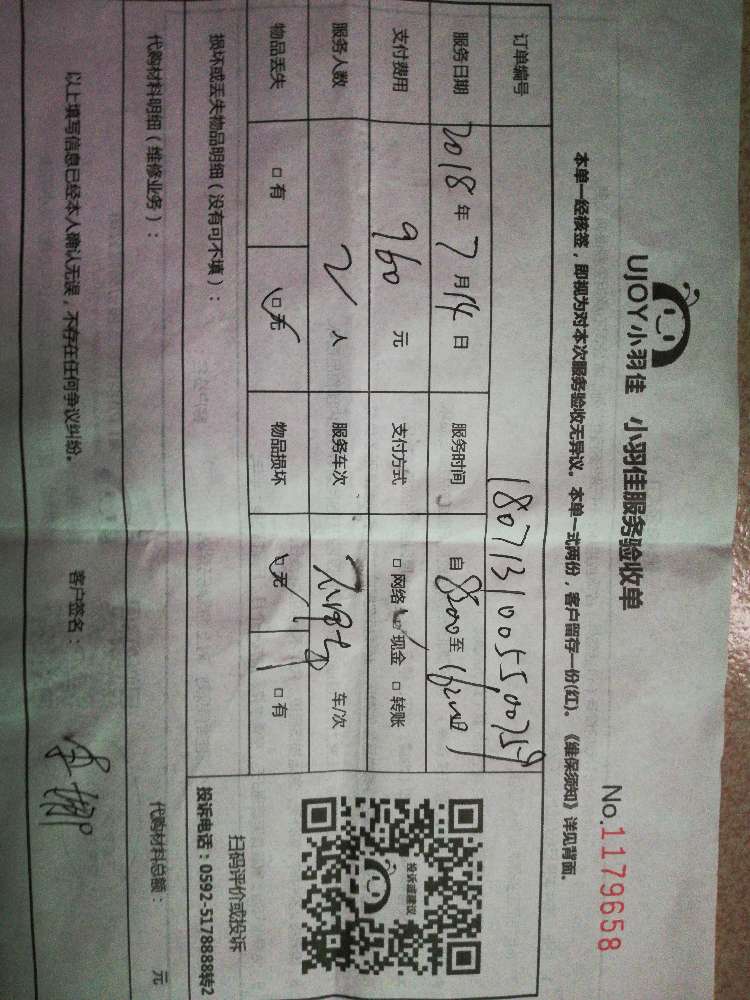 UJOY小羽佳 小羽佳服务验收单
No.1179658
本单一经核签，即视为对本次服务验收无异议。本单一式两份，客户留存一份(红)。《维保须知》详见背面。
订单编号
服务日期 2018 年 7 月 14 日 服务时间 自 8:00 至
支付费用 960 元 支付方式 □ 网络 □ 现金 □ 转账
服务人数 2 人 服务车次 车/次
物品丢失 □ 有 □ 无 物品损坏 □ 无 □ 有
投诉或建议
扫码评价或投诉
投诉电话：0592-5178888转2
损坏或丢失物品明细（没有可不填）：
代购材料明细（维修业务）： 代购材料总额： 元
以上填写信息已经本人确认无误，不存在任何争议纠纷。 客户签名：